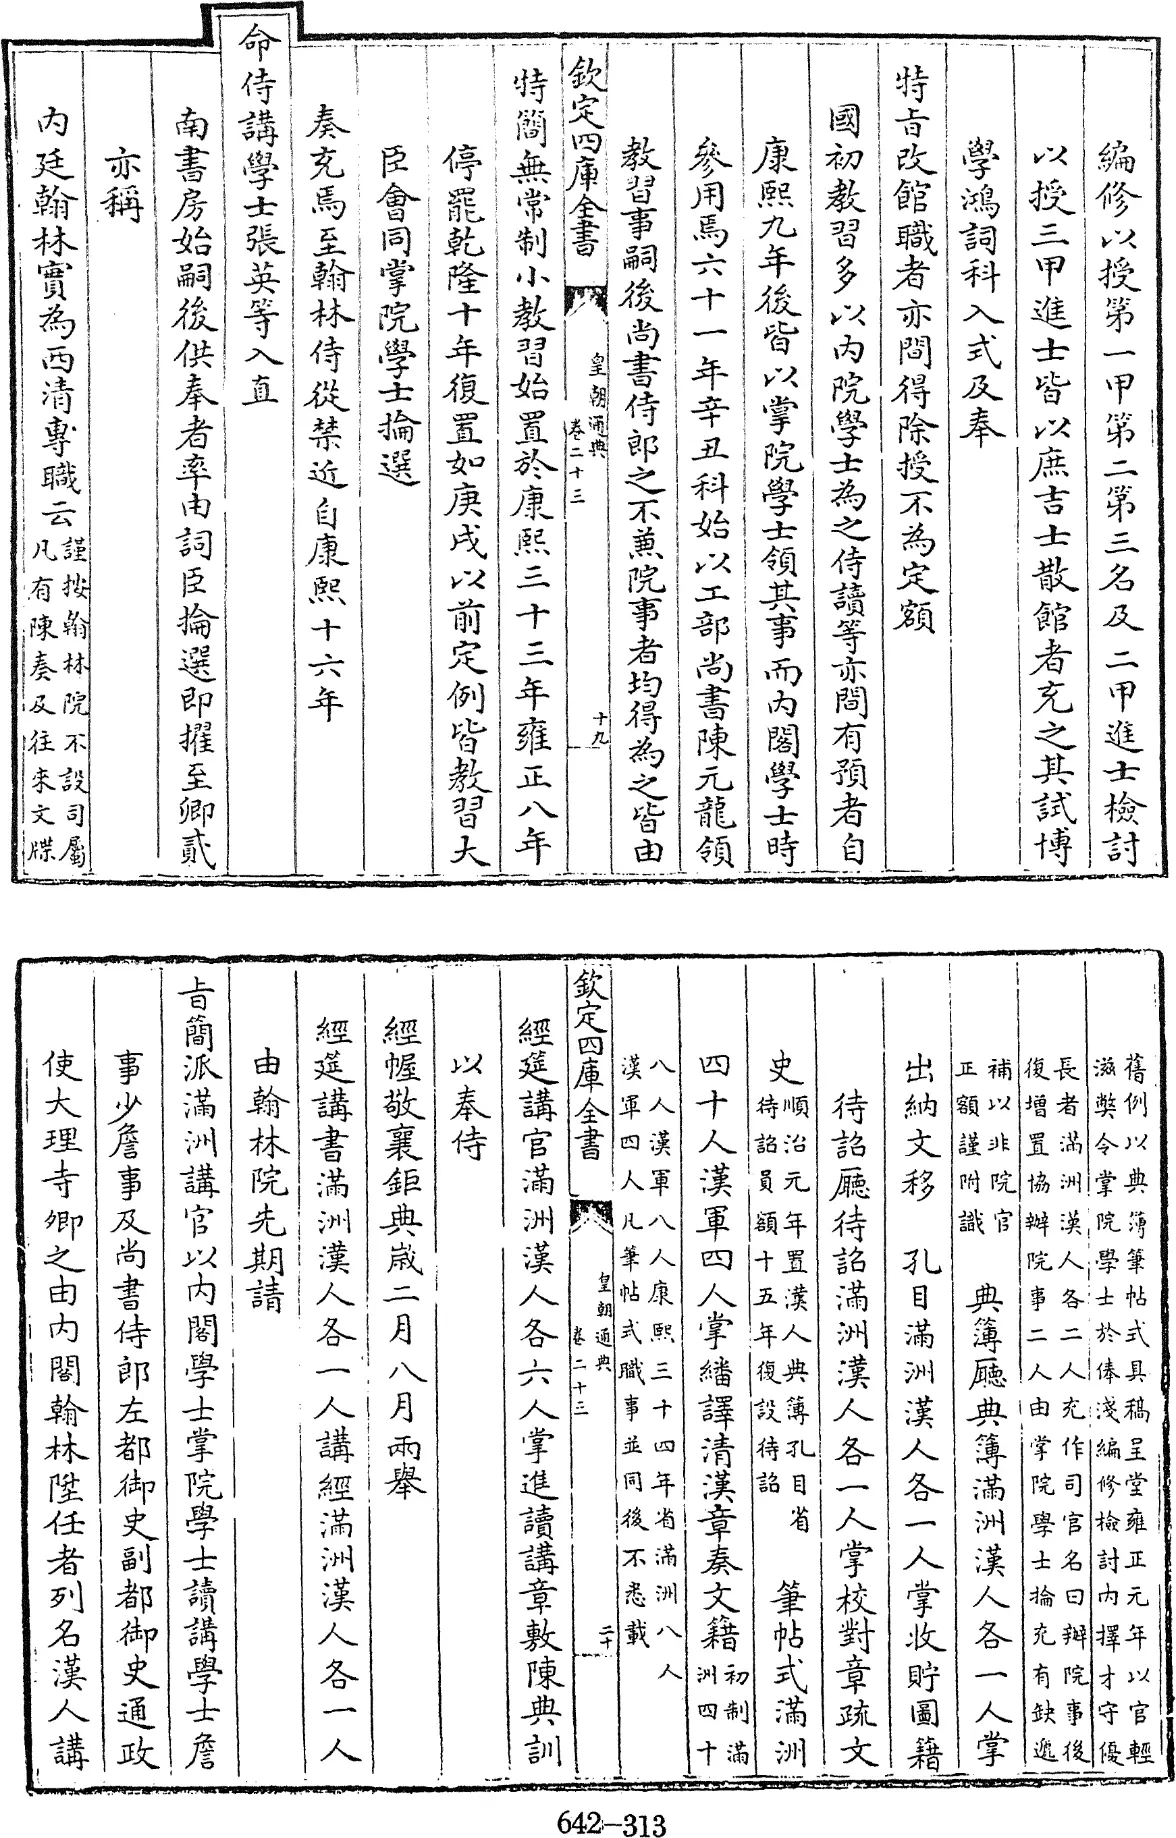 編修以授第一甲第二第三名及二甲進士檢討
以授三甲進士皆以庶吉士散館者充之其試博
學鴻詞科入式及奉
特旨改館職者亦間得除授不為定額
國初教習多以內院學士為之侍讀等亦間有預者自
康熙九年後皆以掌院學士領其事而內閣學士時
參用焉六十一年辛丑科始以工部尚書陳元龍領
教習事嗣後尚書侍郎之不兼院事者均得為之皆由
欽定四庫全書
皇朝通典
卷二十三
十九
特簡無常制小教習始置於康熙三十三年雍正八年
停罷乾隆十年復置如庚戌以前定例皆教習大
臣會同掌院學士掄選
奏充焉至翰林侍從禁近自康熙十六年
命侍講學士張英等入直
南書房始嗣後供奉者率由詞臣掄選即擢至卿貳
亦稱
內廷翰林實為西清專職云
謹按翰林院不設司屬
凡有陳奏及往來文牒
舊例以典簿筆帖式具稿呈堂雍正元年以官輕
滋弊令掌院學士於俸淺編修檢討內擇才守優
長者滿洲漢人各二人充作司官名曰辦院事後
復增置協辦院事二人由掌院學士掄充有缺遞
補以非院官
正額謹附識
典簿廳典簿滿洲漢人各一人掌
出納文移 孔目滿洲漢人各一人掌收貯圖籍
待詔廳待詔滿洲漢人各一人掌校對章疏文
史
順治元年置漢人典簿孔目省
待詔員額十五年復設待詔
筆帖式滿洲
四十人漢軍四人掌繙譯清漢章奏文籍
初制滿
洲四十
八人漢軍八人康熙三十四年省滿洲八人
漢軍四人凡筆帖式職事並同後不悉載
欽定四庫全書
皇朝通典
卷二十三
二十
經筵講官滿洲漢人各六人掌進讀講章敷陳典訓
以奉侍
經幄敬襄鉅典歲二月八月兩舉
經筵講書滿洲漢人各一人講經滿洲漢人各一人
由翰林院先期請
旨簡派滿洲講官以內閣學士掌院學士讀講學士詹
事少詹事及尚書侍郎左都御史副都御史通政
使大理寺卿之由內閣翰林陞任者列名漢人講
642-313